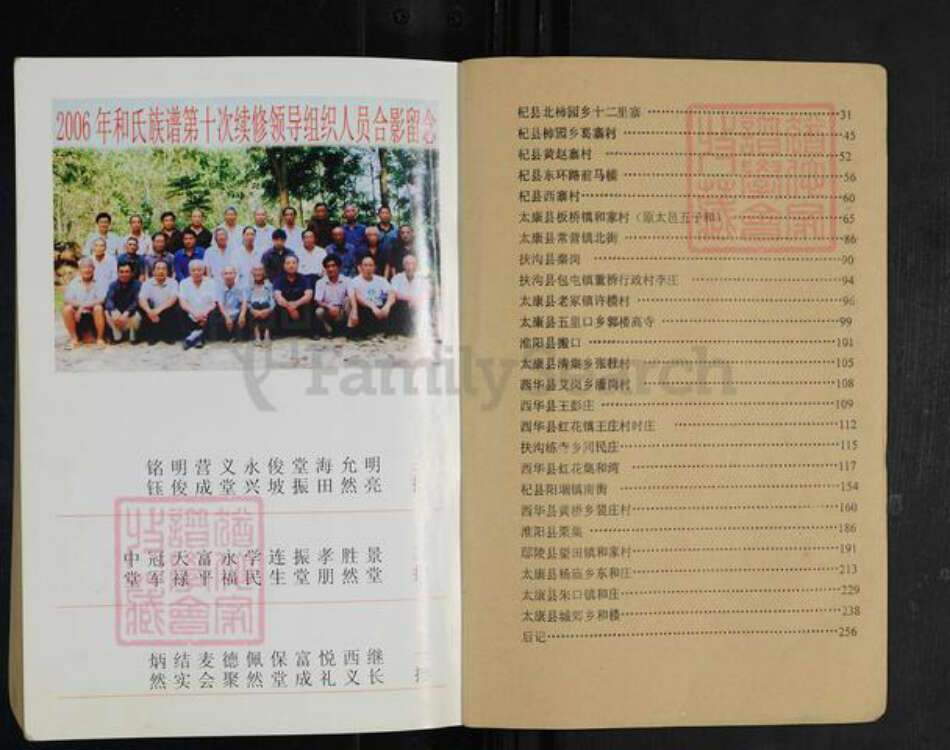 2006 年和氏族谱第十次续修领导组织人员合影留念
铭明营义永俊堂海允明
钰俊成堂兴坡振田然亮
中冠天富永学连振孝胜景
堂军禄平福民生堂朋然堂
炳结麦德佩保富悦西继
然实会聚然堂成礼义长
杞县北柿园乡十二里寨 31
杞县柿园乡葛寨村 45
杞县黄赵寨村 52
杞县东环路前马楼 56
杞县西寨村 60
太康县板桥镇和家村(原太邑五子和) 65
太康县常营镇北街 86
扶沟县秦岗 90
扶沟县包屯镇董桥行政村李庄 94
太康县老冢镇许楼村 96
太康县五里口乡郭楼高寺 99
淮阳县搬口 101
太康县清集乡张程村 105
西华县艾岗乡潘岗村 108
西华县王彭庄 109
西华县红花镇王庄村时庄 112
扶沟练寺乡河民庄 115
西华县红花集和湾 117
杞县阳堌镇南街 154
西华县黄桥乡裴庄村 160
淮阳县栗集 186
鄢陵县望田镇和家村 191
太康县杨庙乡东和庄 213
太康县朱口镇和庄 229
太康县城郊乡和楼 238
后记 256
FamilySearch